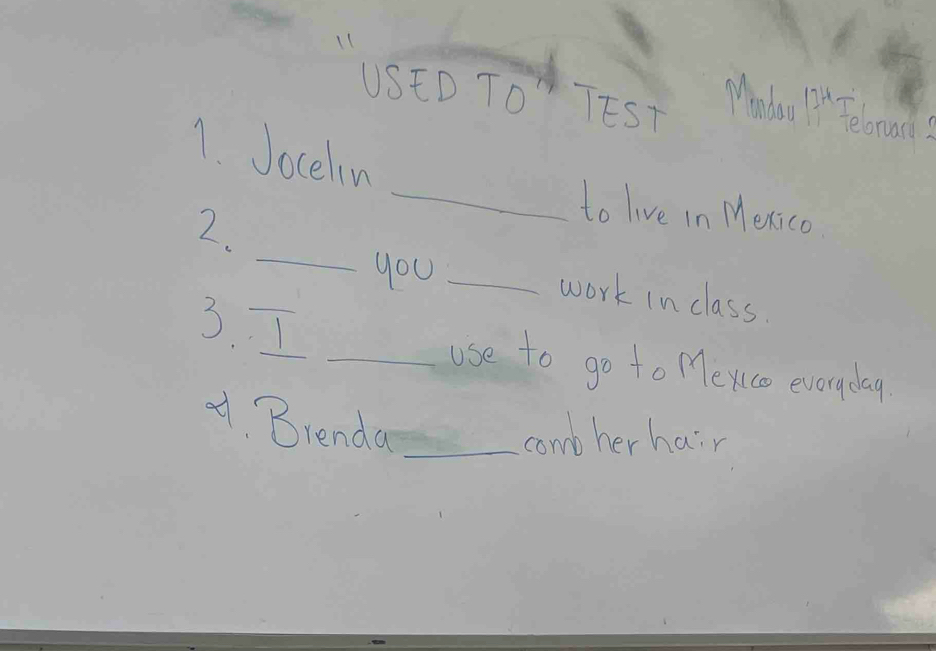 "USED TO" TEST Monday 17TH February 2
1. Jocelin ______ to live in Mexico.
2. ____ you ____ work in class.
3. I ____ use to go to Mexico everyday.
4. Brenda ____ comb her hair.